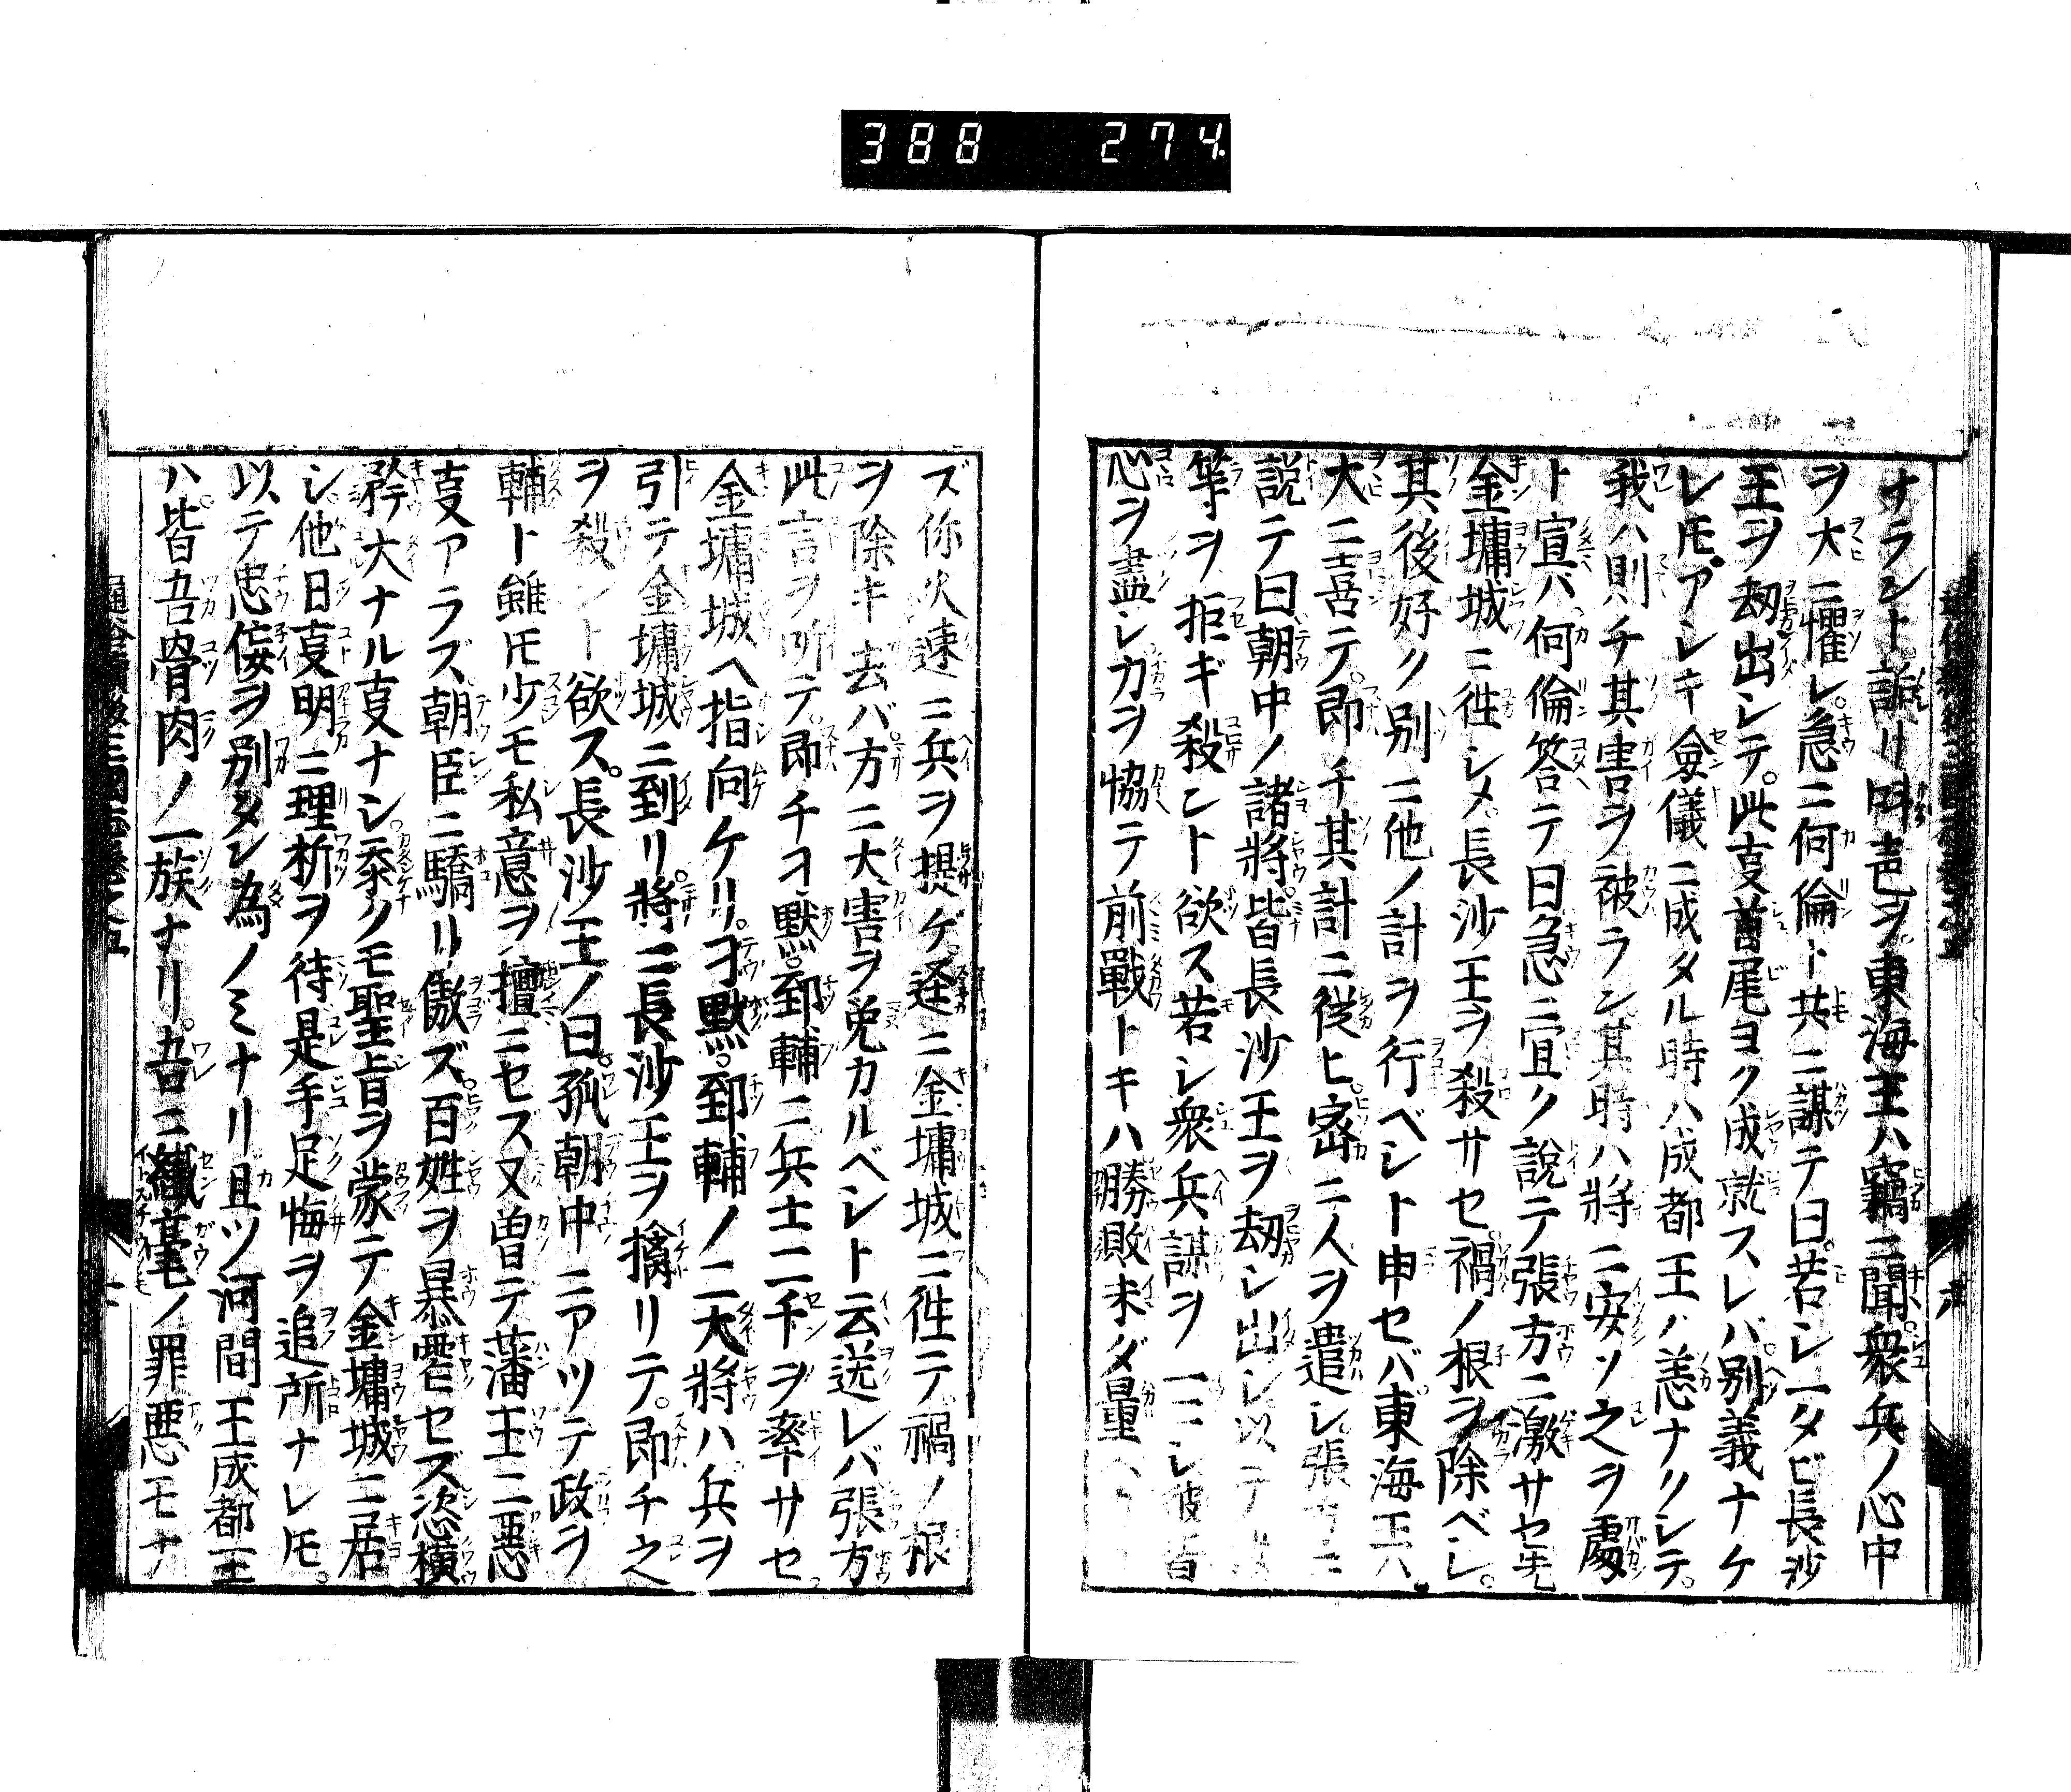 388 274
ナラント訴リ鬨声ヲ東海王ハ竊ニ聞。衆兵ノ心中
ヲ大ニ懼レ。急ニ何倫ト共ニ謀テ曰。若シ一タビ長沙
王ヲ刼出シテ。此叓首尾ヨク成就スレバ別義ナケ
レ𪜈。アシキ僉儀ニ成タル時ハ成都王ハ恙ナリシテ。
我ハ則チ其害ヲ被ラン其時ハ將ニ安ソ之ヲ處
ト宣バ何倫答テ曰急ニ宜ク說テ張方ニ激サセ先
金墉城ニ徃シメ。長沙王ヲ殺サセ禍ノ根ヲ除ベシ。
其後好ク别ニ他ノ計ヲ行ベシト申セバ東海王ハ
大ニ喜テ。即チ其計ニ從ヒ。密ニ人ヲ遣シ。張方ニ
說テ曰朝中ノ諸將皆長沙王ヲ刼シ出シ以テ
等ヲ拒ギ殺ント欲ス若シ衆兵謀ヲ一ニシ彼皆
心ヲ盡シ力ヲ恊テ前戰トキハ勝敗未ダ量
ズ你火速ニ兵ヲ提ゲ逕ニ金墉城ニ徃テ禍ノ根
ヲ除キ去バ方ニ大害ヲ免カルベシト云送レバ張方
此言ヲ所テ。即チ刁默。郅輔ニ兵士二千ヲ率サセ
金墉城ヘ指向ケリ。刁默。郅輔ノ二大將ハ兵ヲ
引テ金墉城ニ到リ。將ニ長沙王ヲ擒リテ。即チ之
ヲ殺ント欲ス。長沙王ノ曰。孤朝中ニアツテ政ヲ
輔ト雖𪜈少モ私意ヲ擅ニセズ又曽テ藩王ニ惡
叓アラズ朝臣ニ驕リ傲ズ。百姓ヲ暴虐セズ恣橫
矜大ナル叓ナシ。忝クモ聖旨ヲ蒙テ金墉城ニ居
シ。他日叓明ニ理析ヲ待是手足悔ヲ追所ナレ𪜈。
以テ忠侫ヲ別タン為ノミナリ且ツ河間王成都王
ハ。皆吾骨肉ノ一族ナリ。吾ニ纎毫ノ罪惡モナ